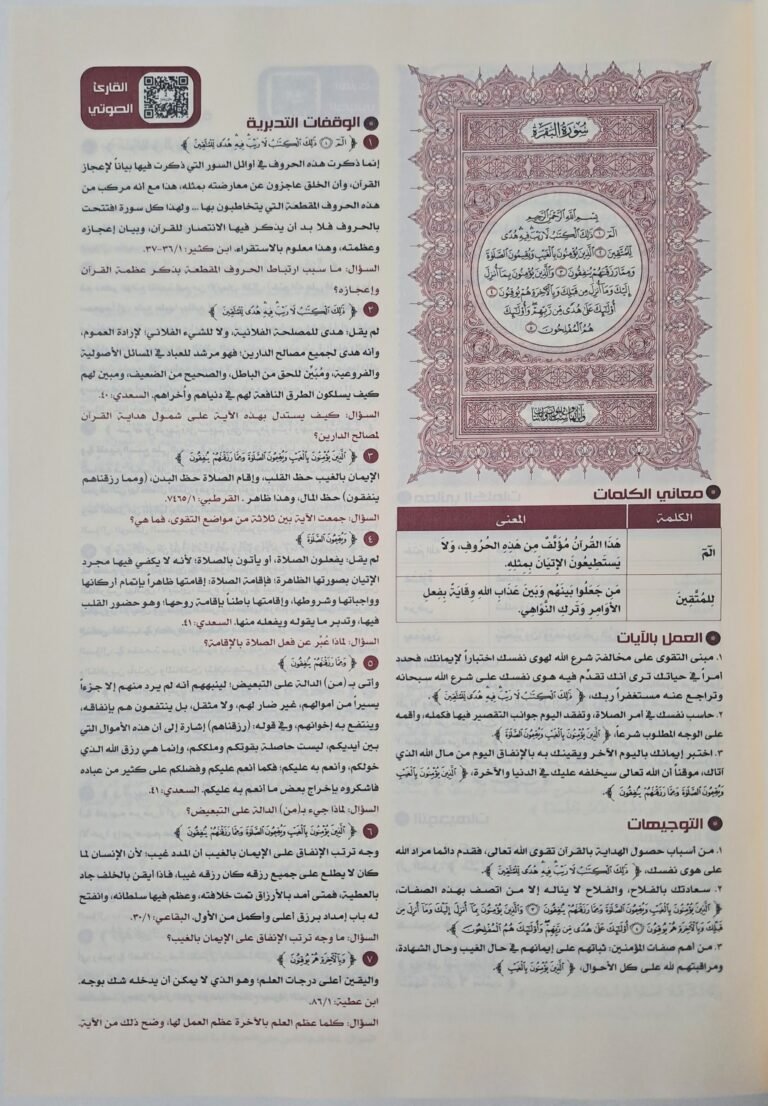 سُورَةُ البَقَرَةِ
بِسْمِ اللَّهِ الرَّحْمَٰنِ الرَّحِيمِ
الٓمٓ ١ ذَٰلِكَ الْكِتَٰبُ لَا رَيْبَ فِيهِ هُدًى
لِّلْمُتَّقِينَ ٢ الَّذِينَ يُؤْمِنُونَ بِالْغَيْبِ وَيُقِيمُونَ الصَّلَوٰةَ
وَمِمَّا رَزَقْنَٰهُمْ يُنفِقُونَ ٣ وَالَّذِينَ يُؤْمِنُونَ بِمَا أُنزِلَ
إِلَيْكَ وَمَا أُنزِلَ مِن قَبْلِكَ وَبِالْآخِرَةِ هُمْ يُوقِنُونَ ٤
أُولَٰئِكَ عَلَىٰ هُدًى مِّن رَّبِّهِمْ وَأُولَٰئِكَ
هُمُ الْمُفْلِحُونَ ٥
معاني الكلمات
الكلمة المعنى
الٓمٓ هَذَا القُرآنُ مُؤَلَّفٌ مِن هَذِهِ الحُرُوفِ، وَلاَ
يَستَطِيعُونَ الإِتيَانَ بِمِثلِهِ.
لِلمُتَّقِينَ مَن جَعَلُوا بَينَهُم وَبَينَ عَذَابِ اللهِ وِقَايَةً بِفِعلِ
الأَوَامِرِ وَتَركِ النَّوَاهِي.
العمل بالآيات
١. مبنى التقوى على مخالفة شرع الله لهوى نفسك اختباراً لإيمانك، فحدد
أمراً في حياتك ترى انك تقدم فيه هوى نفسك على شرع الله سبحانه
وتراجع عنه مستغفراً ربك، ﴿ ذَٰلِكَ الْكِتَٰبُ لَا رَيْبَ فِيهِ هُدًى لِّلْمُتَّقِينَ ﴾.
٢. حاسب نفسك في أمر الصلاة، وتفقد اليوم جوانب التقصير فيها فكمله، وأقمه
على الوجه المطلوب شرعاً، ﴿ الَّذِينَ يُؤْمِنُونَ بِالْغَيْبِ وَيُقِيمُونَ الصَّلَوٰةَ ﴾.
٣. اختبر إيمانك باليوم الآخر ويقينك به بالإنفاق اليوم من مال الله الذي
آتاك، موقناً أن الله تعالى سيخلفه عليك في الدنيا والآخرة، ﴿ الَّذِينَ يُؤْمِنُونَ بِالْغَيْبِ
وَيُقِيمُونَ الصَّلَوٰةَ وَمِمَّا رَزَقْنَٰهُمْ يُنفِقُونَ ﴾.
التوجيهات
١. من أسباب حصول الهداية بالقرآن تقوى الله تعالى، فقدم دائما مراد الله
على هوى نفسك، ﴿ ذَٰلِكَ الْكِتَٰبُ لَا رَيْبَ فِيهِ هُدًى لِّلْمُتَّقِينَ ﴾.
٢. سعادتك بالفلاح، والفلاح لا يناله إلا من اتصف بهذه الصفات،
﴿ الَّذِينَ يُؤْمِنُونَ بِالْغَيْبِ وَيُقِيمُونَ الصَّلَوٰةَ وَمِمَّا رَزَقْنَٰهُمْ يُنفِقُونَ ٣ وَالَّذِينَ يُؤْمِنُونَ بِمَا أُنزِلَ إِلَيْكَ وَمَا أُنزِلَ مِن
قَبْلِكَ وَبِالْآخِرَةِ هُمْ يُوقِنُونَ ٤ أُولَٰئِكَ عَلَىٰ هُدًى مِّن رَّبِّهِمْ وَأُولَٰئِكَ هُمُ الْمُفْلِحُونَ ﴾.
٣. من أهم صفات المؤمنين: ثباتهم على إيمانهم في حال الغيب وحال الشهادة،
ومراقبتهم لله على كل الأحوال، ﴿ الَّذِينَ يُؤْمِنُونَ بِالْغَيْبِ ﴾.
القارئ
الصوتي
الوقفات التدبرية
١ ﴿ الٓمٓ ١ ذَٰلِكَ الْكِتَٰبُ لَا رَيْبَ فِيهِ هُدًى لِّلْمُتَّقِينَ ﴾
إنما ذكرت هذه الحروف في أوائل السور التي ذكرت فيها بياناً لإعجاز
القرآن، وأن الخلق عاجزون عن معارضته بمثله، هذا مع انه مركب من
هذه الحروف المقطعة التي يتخاطبون بها ... ولهذا كل سورة افتتحت
بالحروف فلا بد أن يذكر فيها الانتصار للقرآن، وبيان إعجازه
وعظمته، وهذا معلوم بالاستقراء. ابن كثير: ٣٦/١-٣٧.
السؤال: ما سبب ارتباط الحروف المقطعة بذكر عظمة القرآن
وإعجازه؟
٢ ﴿ ذَٰلِكَ الْكِتَٰبُ لَا رَيْبَ فِيهِ هُدًى لِّلْمُتَّقِينَ ﴾
لم يقل: هدى للمصلحة الفلانية، ولا للشيء الفلاني؛ لإرادة العموم،
وأنه هدى لجميع مصالح الدارين؛ فهو مرشد للعباد في المسائل الأصولية
والفروعية، ومُبَيِّن للحق من الباطل، والصحيح من الضعيف، ومبين لهم
كيف يسلكون الطرق النافعة لهم في دنياهم وأخراهم. السعدي: ٤٠.
السؤال: كيف يستدل بهذه الآية على شمول هداية القرآن
لمصالح الدارين؟
٣ ﴿ الَّذِينَ يُؤْمِنُونَ بِالْغَيْبِ وَيُقِيمُونَ الصَّلَوٰةَ وَمِمَّا رَزَقْنَٰهُمْ يُنفِقُونَ ﴾
الإيمان بالغيب حظ القلب، وإقام الصلاة حظ البدن، (ومما رزقناهم
ينفقون) حظ المال، وهذا ظاهر . القرطبي: ٧٤٦٥/١.
السؤال: جمعت الآية بين ثلاثة من مواضع التقوى، فما هي؟
٤ ﴿ وَيُقِيمُونَ الصَّلَوٰةَ ﴾
لم يقل: يفعلون الصلاة، أو يأتون بالصلاة؛ لأنه لا يكفي فيها مجرد
الإتيان بصورتها الظاهرة؛ فإقامة الصلاة: إقامتها ظاهراً بإتمام أركانها
وواجباتها وشروطها، وإقامتها باطناً بإقامة روحها؛ وهو حضور القلب
فيها، وتدبر ما يقوله ويفعله منها. السعدي: ٤١.
السؤال: لماذا عُبِّر عن فعل الصلاة بالإقامة؟
٥ ﴿ وَمِمَّا رَزَقْنَٰهُمْ يُنفِقُونَ ﴾
وأتى بـ (من) الدالة على التبعيض؛ لينبههم أنه لم يرد منهم إلا جزءاً
يسيراً من أموالهم، غير ضار لهم، ولا مثقل، بل ينتفعون هم بإنفاقه،
وينتفع به إخوانهم، وفي قوله: (رزقناهم) إشارة إلى أن هذه الأموال التي
بين أيديكم، ليست حاصلة بقوتكم وملككم، وإنما هي رزق الله الذي
خولكم، وأنعم به عليكم؛ فكما أنعم عليكم وفضلكم على كثير من عباده
فاشكروه بإخراج بعض ما أنعم به عليكم. السعدي: ٤١.
السؤال: لماذا جيء بـ(من) الدالة على التبعيض؟
٦ ﴿ الَّذِينَ يُؤْمِنُونَ بِالْغَيْبِ وَيُقِيمُونَ الصَّلَوٰةَ وَمِمَّا رَزَقْنَٰهُمْ يُنفِقُونَ ﴾
وجه ترتب الإنفاق على الإيمان بالغيب أن المدد غيب؛ لأن الإنسان لما
كان لا يطلع على جميع رزقه كان رزقه غيبا، فاذا أيقن بالخلف جاد
بالعطية، فمتى أمد بالأرزاق تمت خلافته، وعظم فيها سلطانه، وانفتح
له باب إمداد برزق أعلى وأكمل من الأول. البقاعي: ٣٠/١.
السؤال: ما وجه ترتب الإنفاق على الإيمان بالغيب؟
٧ ﴿ وَبِالْآخِرَةِ هُمْ يُوقِنُونَ ﴾
واليقين أعلى درجات العلم؛ وهو الذي لا يمكن أن يدخله شك بوجه.
ابن عطية: ٨٦/١.
السؤال: كلما عظم العلم بالآخرة عظم العمل لها، وضح ذلك من الآية.